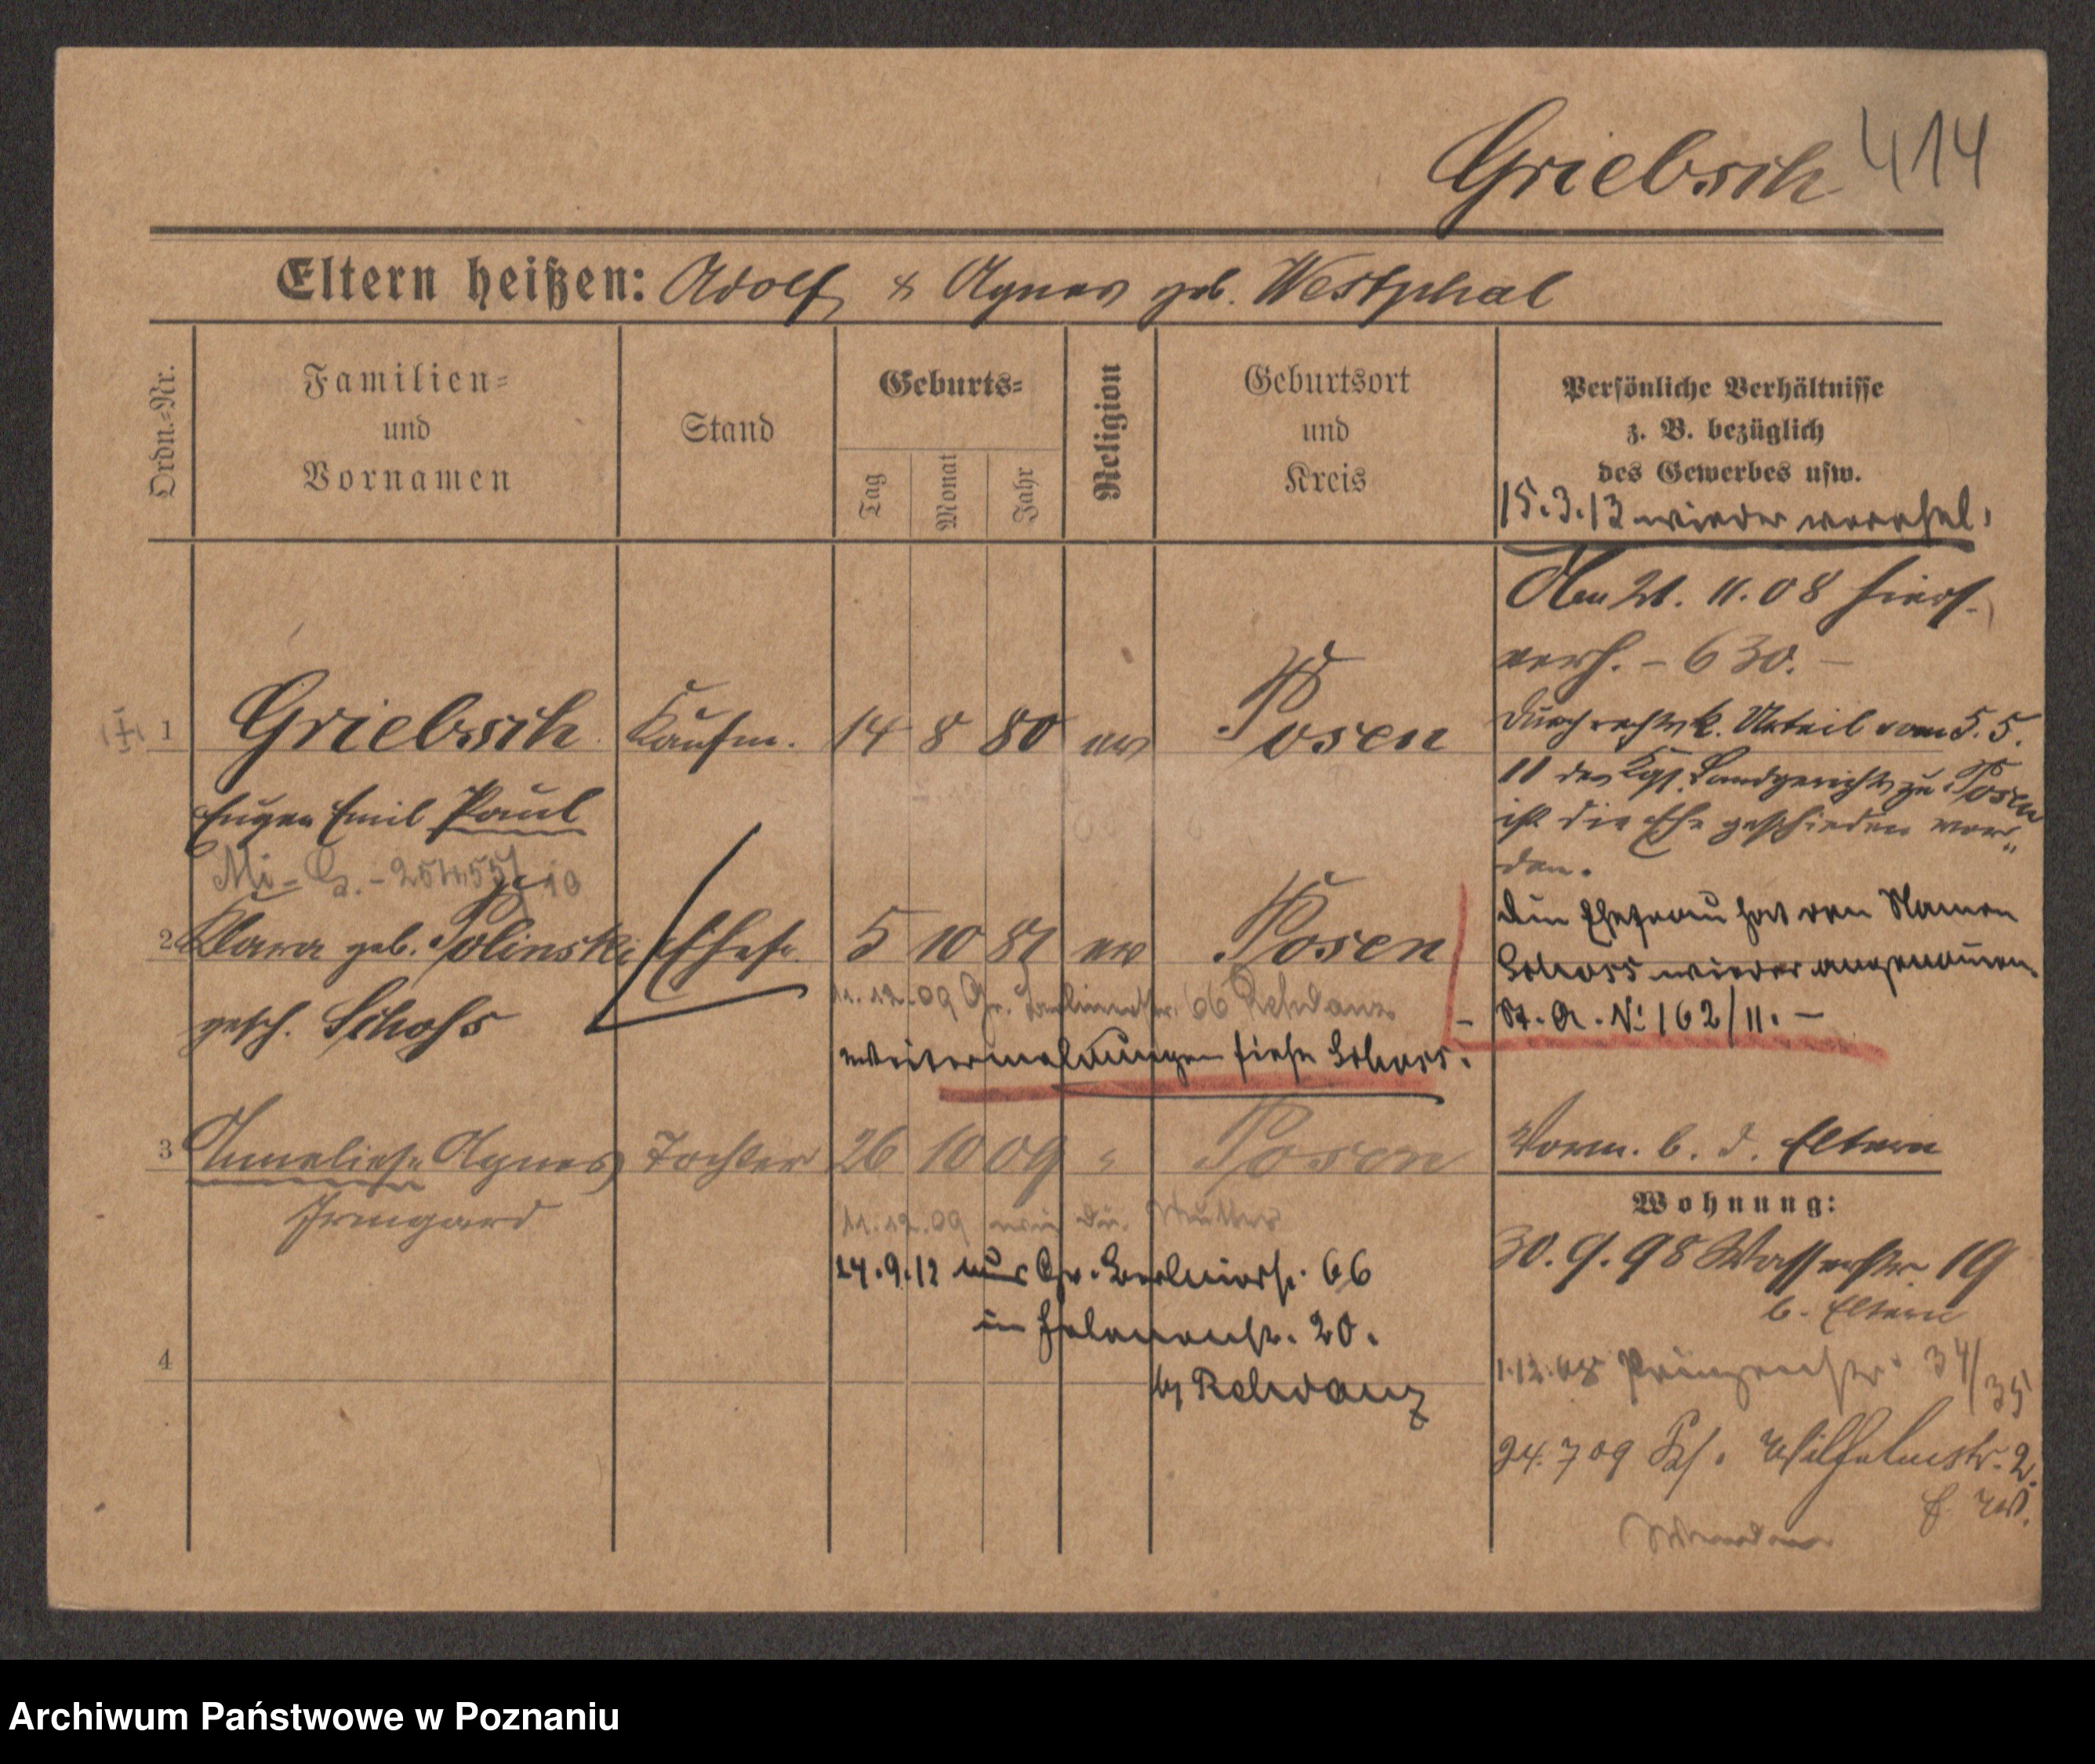 Griebsch 414
Eltern heißen: Adolf & Agnes geb. Westphal
Ordn.-Nr.
Familien-
und
Vornamen
Stand
Geburts-
Tag
Monat
Jahr
Religion
Geburtsort
und
Kreis
Persönliche Verhältnisse
z. B. bezüglich
des Gewerbes usw.
15.3.13 wieder verehel.
Am 21. 11. 08 hiers.
verh. - 630. -
1 Griebsch Kaufm. 14 8 80 ev Posen
Eugen Emil Paul
Durch rechtsk. Urteil vom 5. 5.
11 des Kgl. Landgerichts zu Posen
ist die Ehe geschieden wor-
den.
2 Klara geb. Polinski Ehefr. 5 10 81 ev Posen
gesch. Schoss
Die Ehefrau hat den Namen
Schoss wieder angenommen.
St. A. No 162/11. -
11.12.09 Gr. Berlinerstr. 66 Rehdanz
Weitermeldungen siehe Schoss.
3 Anneliese Agnes Tochter 26 10 09 " Posen
Irmgard
Vorm. b. d. Eltern
11.12.09 wie die Mutter
24.9.12 aus Gr. Berlinerstr. 66
in Helenenstr. 20.
by Rehdanz
4
Wohnung:
30.9.98 Wasserstr. 19
b. Eltern
1.12.08 Prinzenstr. 34/35
24.7 09 Wilhelmstr. 2.
Archiwum Państwowe w Poznaniu